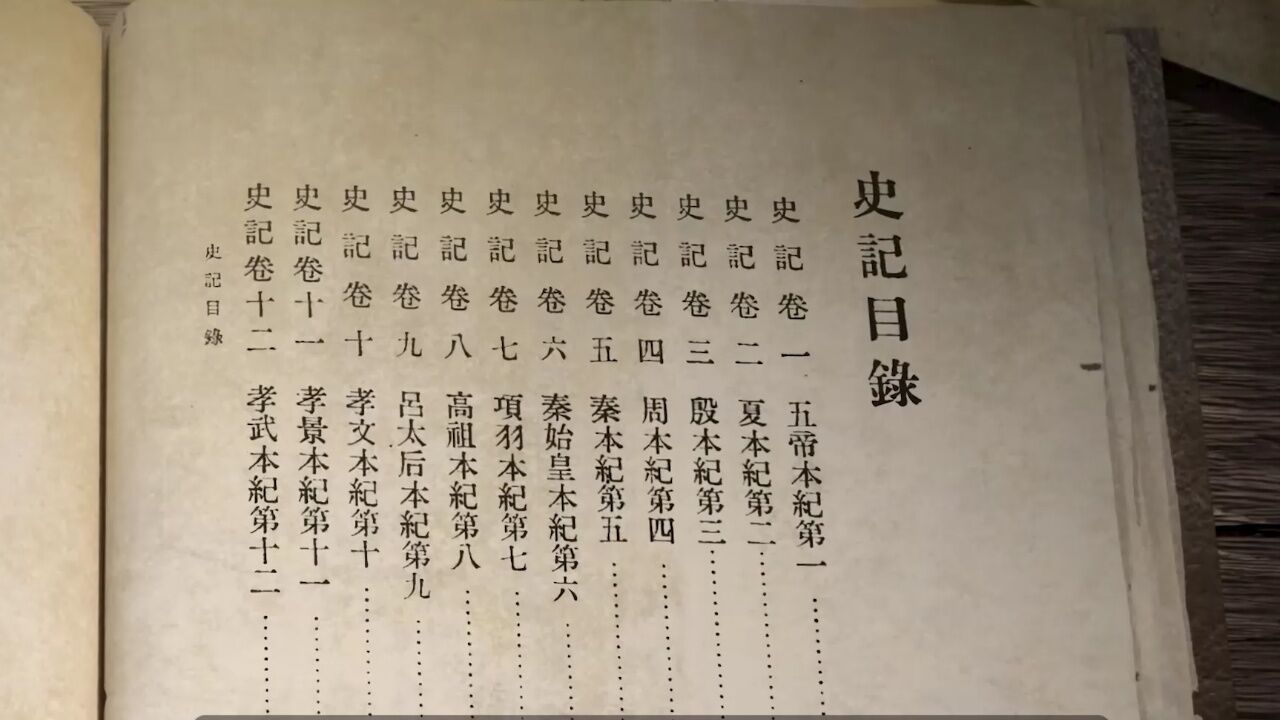 史記目錄
史記卷一 五帝本紀第一
史記卷二 夏本紀第二
史記卷三 殷本紀第三
史記卷四 周本紀第四
史記卷五 秦本紀第五
史記卷六 秦始皇本紀第六
史記卷七 項羽本紀第七
史記卷八 高祖本紀第八
史記卷九 呂太后本紀第九
史記卷十 孝文本紀第十
史記卷十一 孝景本紀第十一
史記卷十二 孝武本紀第十二
史記目錄